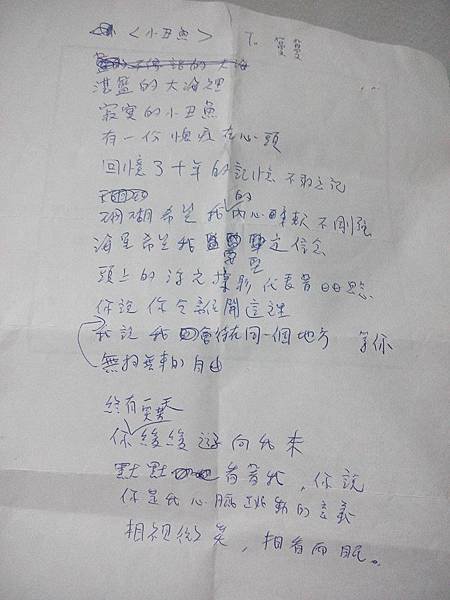 <小丑魚> To 蔓蔓
湛藍的大海裡
寂寞的小丑魚
有一份惦在心頭
回憶了十年的記憶 不刻之記
珊瑚希望我的內心柔軟不剛強
海星希望我堅定信念
頭上的海光掠影代表著日日思念
你說你會離開這裡
我說我會待在同一個地方 等你
無拘無束的自由
終有天
你緩緩游向我來
默默看著我,你說
你是我心臟跳動的意義
相視微笑,相看而眠。